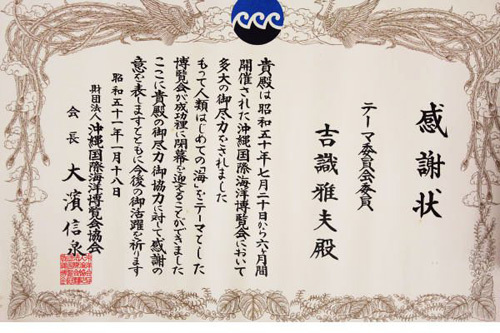 感謝状
テーマ委員会委員
吉識雅夫殿
貴殿は昭和五十年七月二十日から六ヶ月間
開催された沖縄国際海洋博覧会において
多大の御尽力をされました
もって人類はじめての「海」をテーマとした
博覧会が成功裡に閉幕を迎えることができました
ここに貴殿の御尽力御協力に対して感謝の
意を表しますとともに今後の御活躍を祈ります
昭和五十一年一月十八日
財団法人 沖縄国際海洋博覧会協会
会長 大濱信泉